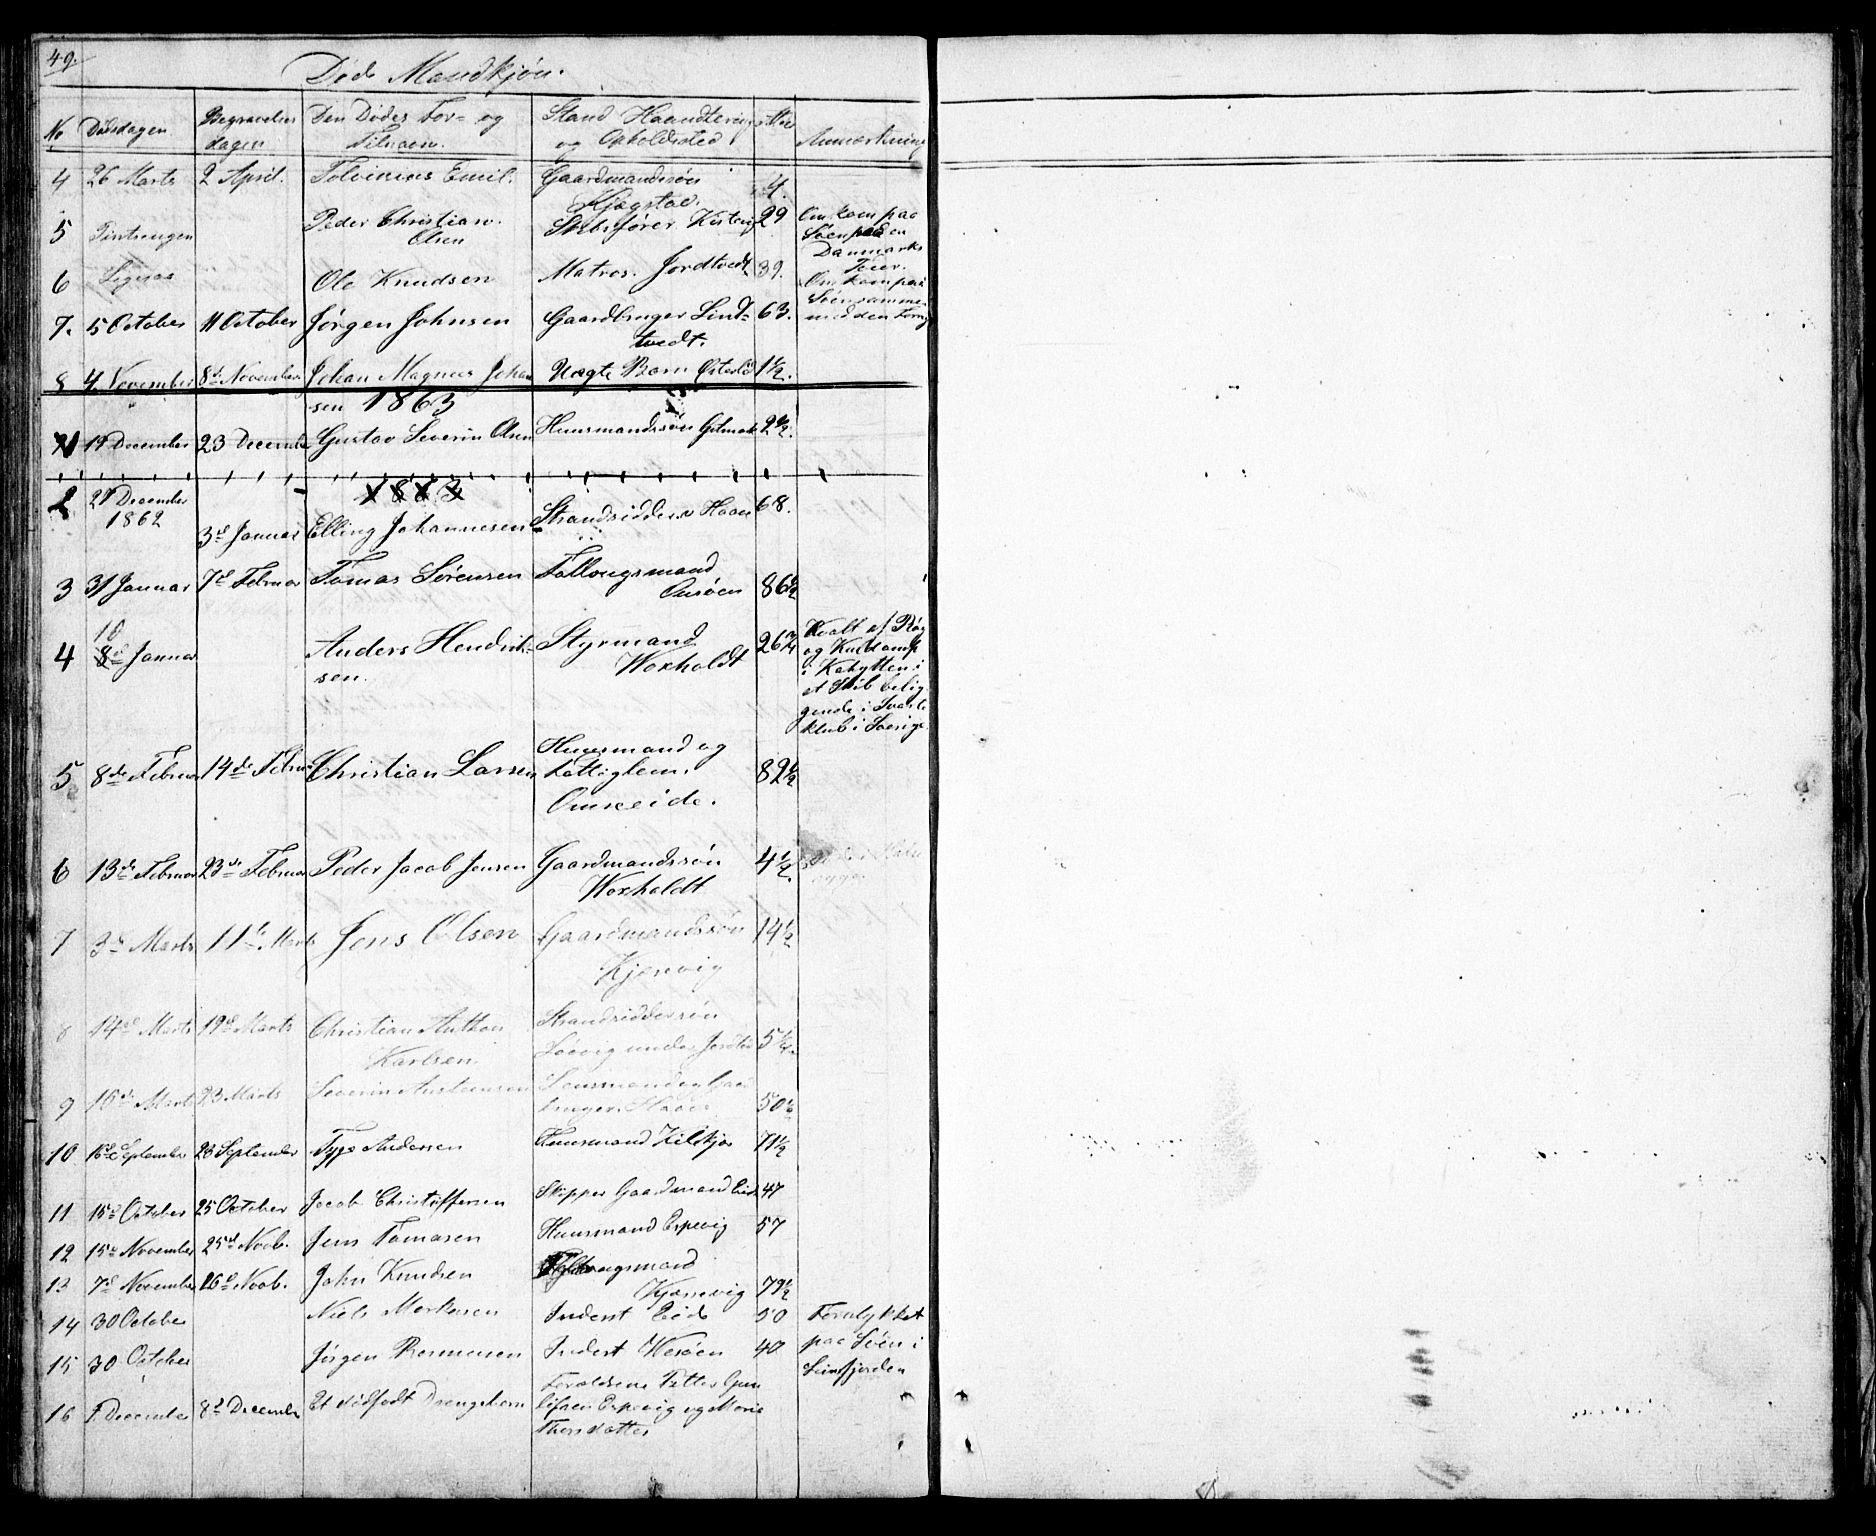 49.
Død Mandkjøn.
No Dødsdagen Begravelses dagen Den Dødes For- og Tilnavn. Stand Haandtering og Opholdssted Alder Anmærkning
4 26 Marts 2 April. Tolvinius Emil. Gaardmandssøn 4.
5 Peder Christian Olsen Skibsfører 29 Omkom paa Søen paa en Danmarks
6 Ole Knudsen Matros. Jordtvedt 39. Omkom paa Søen sammen med den forrige
7. 5 October 11 October Jørgen Johnsen Gaardbruger Lindtvedt. 63.
8 4 November 8d November Johan Magnus Johansen Uægte Barn 1½.
1863
1 19 December 23 December Gustav Severin Olsen Huusmandssøn 2½.
1863
2 27 December 1862 3d Januar Elling Johannesen Strandsidder Haave 68.
3 31 Januar 7d Februar Tomas Sørensen Follougsmand Omsøen 86½
4 10 8d Januar Anders Hendriksen. Styrmand Woxholdt 26¾ Kvalt af Røg og Kuldamp i Kahytten i et Skib beliggende i i Sverige
5 8de Februar 14de Februar Christian Larsen Huusmand og Fattiglem. Omreeide. 82½
6 13de Februar 23de Februar Peder Jacob Jensen Gaardmandssøn Woxholdt 4½.
7 3d Marts 11te Marts Jens Olsen Gaardmandssøn Kjenvig 14½
8 14de Marts 19d Marts Christian Anthon Karlsen Strandsiddersøn under 5¼
9 15de Marts 23 Marts Severin Austensen Lensmand og Gaardbruger. Haave 50½
10 16d September 23 September Tyge Andersen Huusmand 71½
11 15d October 25 October Jacob Christoffersen Skipper Gaardmand Eide 47
12 15de November 25d Novb. Jens Tomasen Huusmand Espevig 57
13 7d November 16d Novb. John Knudsen Kjenvig 79½
14 30 October Niels Markusen Inderst Eide 50 Forulykket
15 30 October Jørgen Rasmusen Inderst Wesøen 40 paa Søen i
16 1 December 8d December Et dødfødt Drengebarn Forældrene Petter Espevig og Marie Thorsdatter